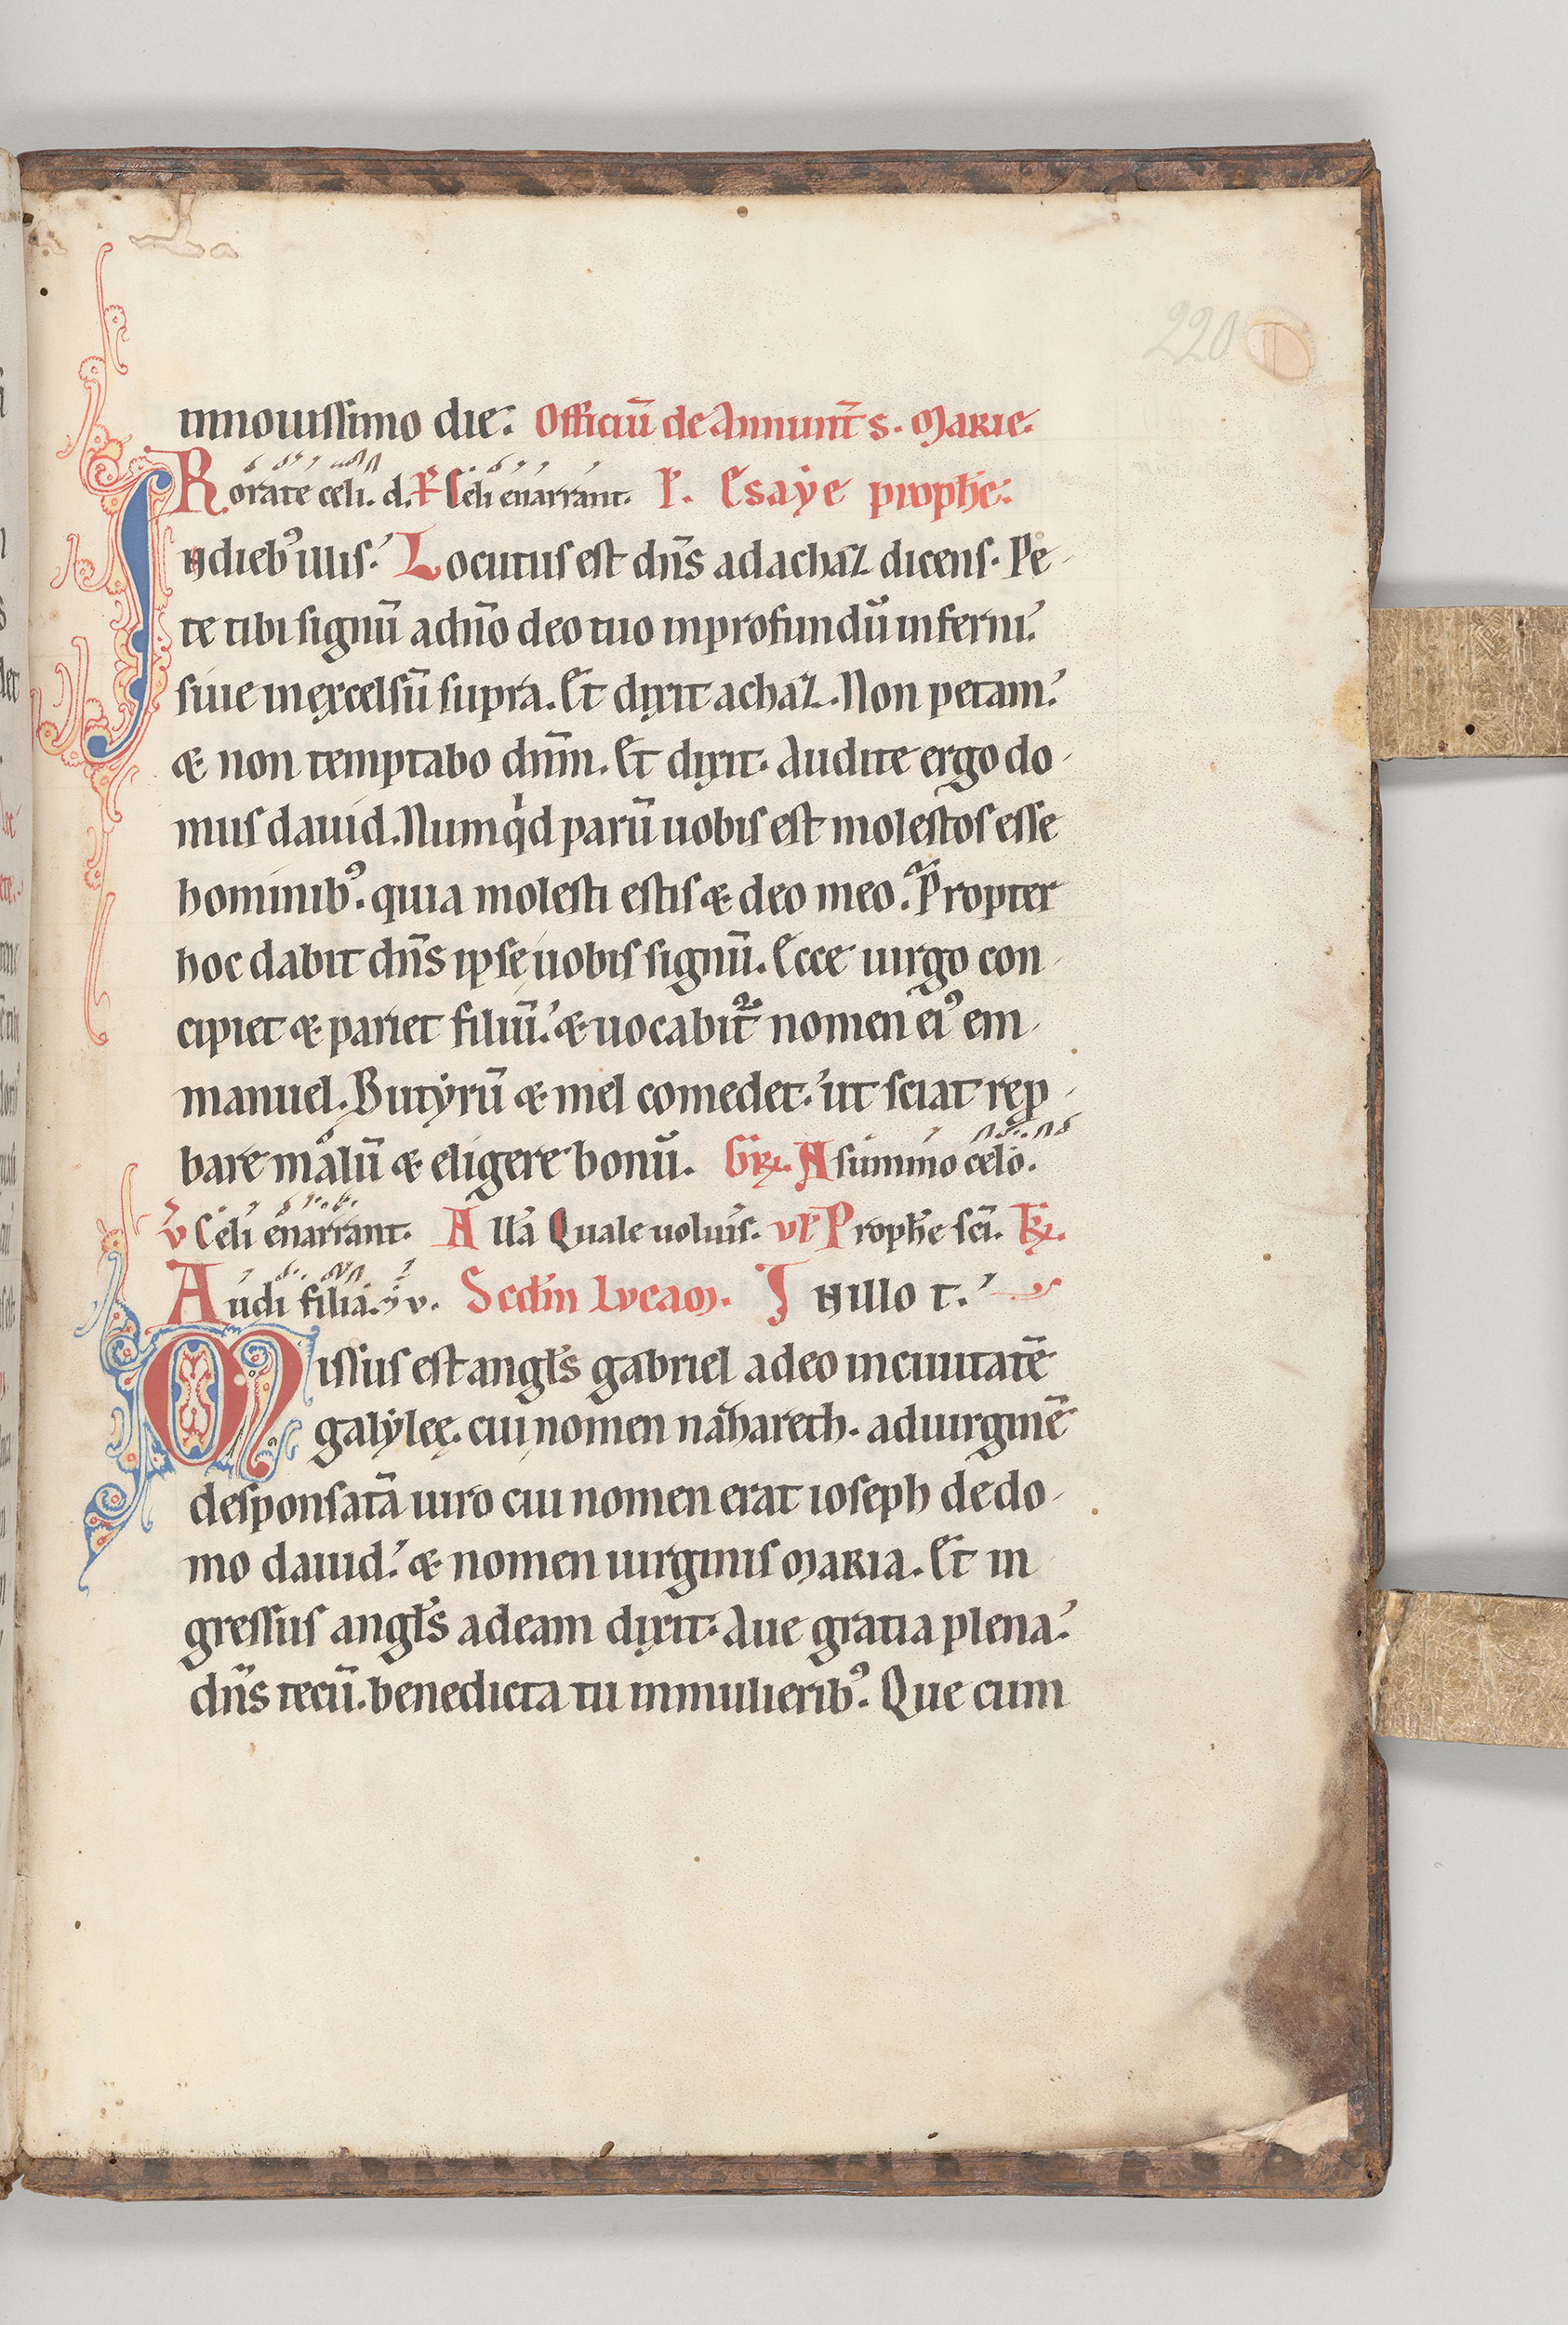 220
innouissimo die. Officiū de Annunt̄ s. Marie.
Rorate celi. d. Ps Celi enarrant. l. Esaẏe proph̄e:
Indieb᷒ illis. Locutus est dn̄s adachaz dicens. Pe
te tibi signū adn̄o deo tuo inprofundū inferni.
siue inexcelsū supra. Et dixit achaz. Non petam.
& non temptabo dnm̄. Et dixit. Audite ergo do
mus dauid. Numqͥd parū uobis est molestos esse
hominib᷒. quia molesti estis & deo meo. Propter
hoc dabit dn̄s ipse uobis signū. Ecce uirgo con
cipiet & pariet filiū. & uocabit᷑ nomen ei᷒ em
manuel. Butẏrū & mel comedet. ut sciat rep̱
bare malū & eligere bonū. Gr̄. A summo celo.
v̄ Celi enarrant. All̄a Quale uoluīs. vl̄ Proph̄e sc̄i. Tr̄.
Audi filia. v. Scd̄m Lvcam. Inillo t.
Missus est angl̄s gabriel adeo inciuitatē
galẏleę. cui nomen nazareth. aduirginē
desponsatā uiro cui nomen erat ioseph dedo
mo dauid. & nomen uirginis Maria. Et in
gressus angl̄s adeam dixit. Aue gratia plena.
dn̄s tecū. benedicta tu inmulierib᷒. Que cum